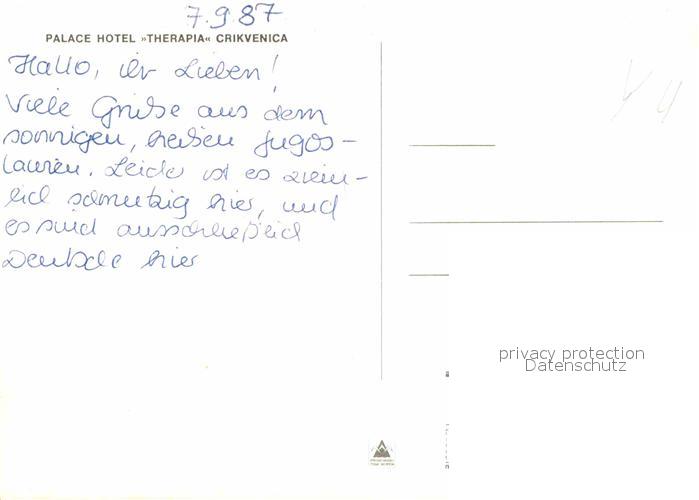 7.9.87
PALACE HOTEL »THERAPIA« CRIKVENICA
Hallo, ihr Lieben!
Viele Grüße aus dem
sonnigen, heißen Jugos-
lawien. Leider ist es ziem-
lich schmutzig hier, und
es sind ausschließlich
Deutsche hier
privacy protection
Datenschutz